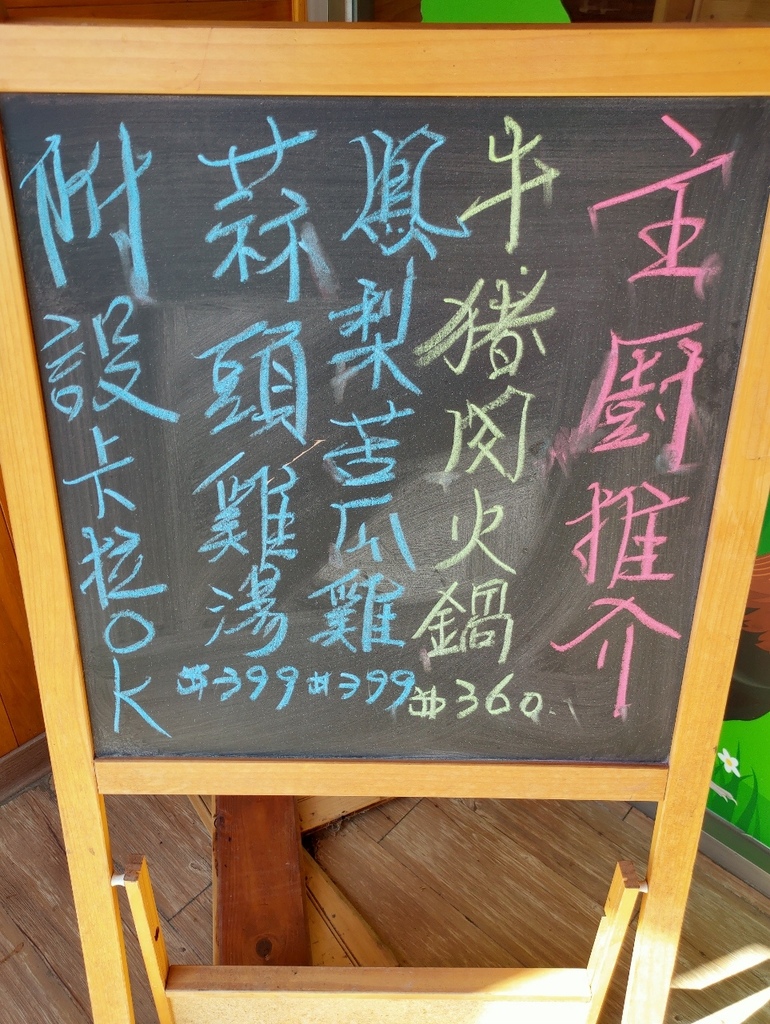 主廚推介
牛豬肉火鍋$360
鳳梨苦瓜雞$399
蒜頭雞湯$399
附設卡拉OK